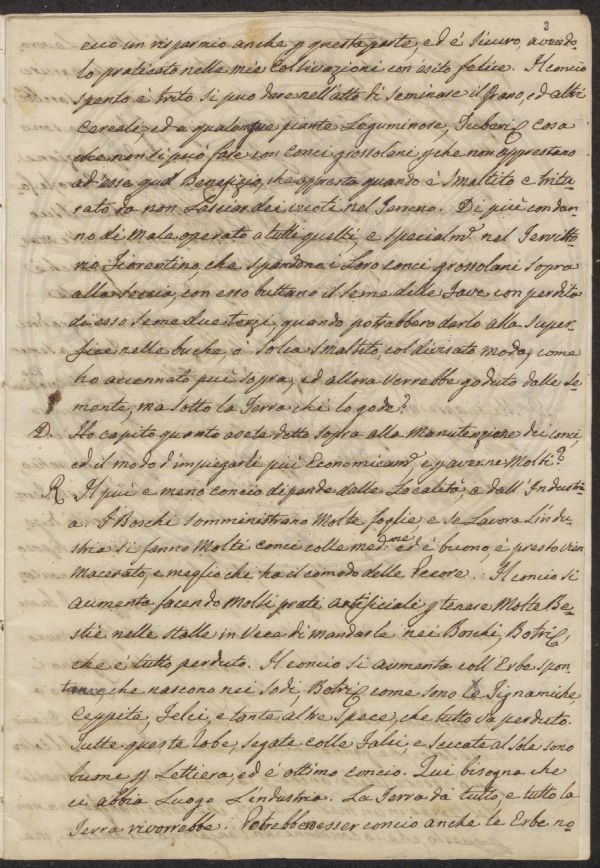 2
evo un risparmio anche p questa parte, ed é sicuro avendo-
lo praticato nelle mie Coltivazioni con esito felice. Il concio
spento e trito si può dare nell'atto di seminare il Grano, ed altri
Cereali, ed a qualonque piante Leguminose, Tuberi &c cosa
che non si può fare con conci grossolani, p che non apprestano
ad esse quel Benefizio, che appresta quando é smaltito e tritu-
rato da non Lasciar dei vuoti nel Terreno. Di più condan-
no di male operato a tutti quelli, e specialm.e nel Territto-
rio Fiorentino, che spandono i Loro conci grossolani sopra
alla terra, con esso buttano il seme delle Fave con perdita
di esso seme due terzi, quando potrebbero darlo alla super-
fice nelle buche, o solca smaltito col divisato modo, come
ho accennato più sopra, ed allora verrebbe goduto dalle se-
mente, ma sotto la Terra chi lo gode?
D. Ho capito quanto avete detto sopra alla manutenzione dei conci,
ed il modo d'impiegarli più Economicam.e, e p averne Molti?
R Il più e meno concio dipende dalle Località e dall'Industri-
a. I Boschi somministrano Molte foglie, e se Lavora L'indu-
stria si fanno Molti conci colle med.me ed é buono, e presto vien
macerato, e meglio chi ha il comodo delle Pecore. Il concio si
aumenta facendo Molti prati artificiali p tenere Molte Be-
stie nelle stalle in vece di mandarle nei Boschi, Botri &c,
che é tutto perduto. Il concio si aumenta coll'Erbe spon-
tanee, che nascono nei sodi, Botri &c come sono le Tignamiche,
Ceppite, Felci, e tante altre spece, che tutto va perduto.
Tutte queste robe, segate colle Falci, e seccate al sole sono
buone p Lettiera, ed é ottimo concio. Qui bisogna che
ci abbia Luogo L'industria. La Terra dà tutto, e tutto la
Terra rivorrebbe. Potrebbero esser concio anche le Erbe no-